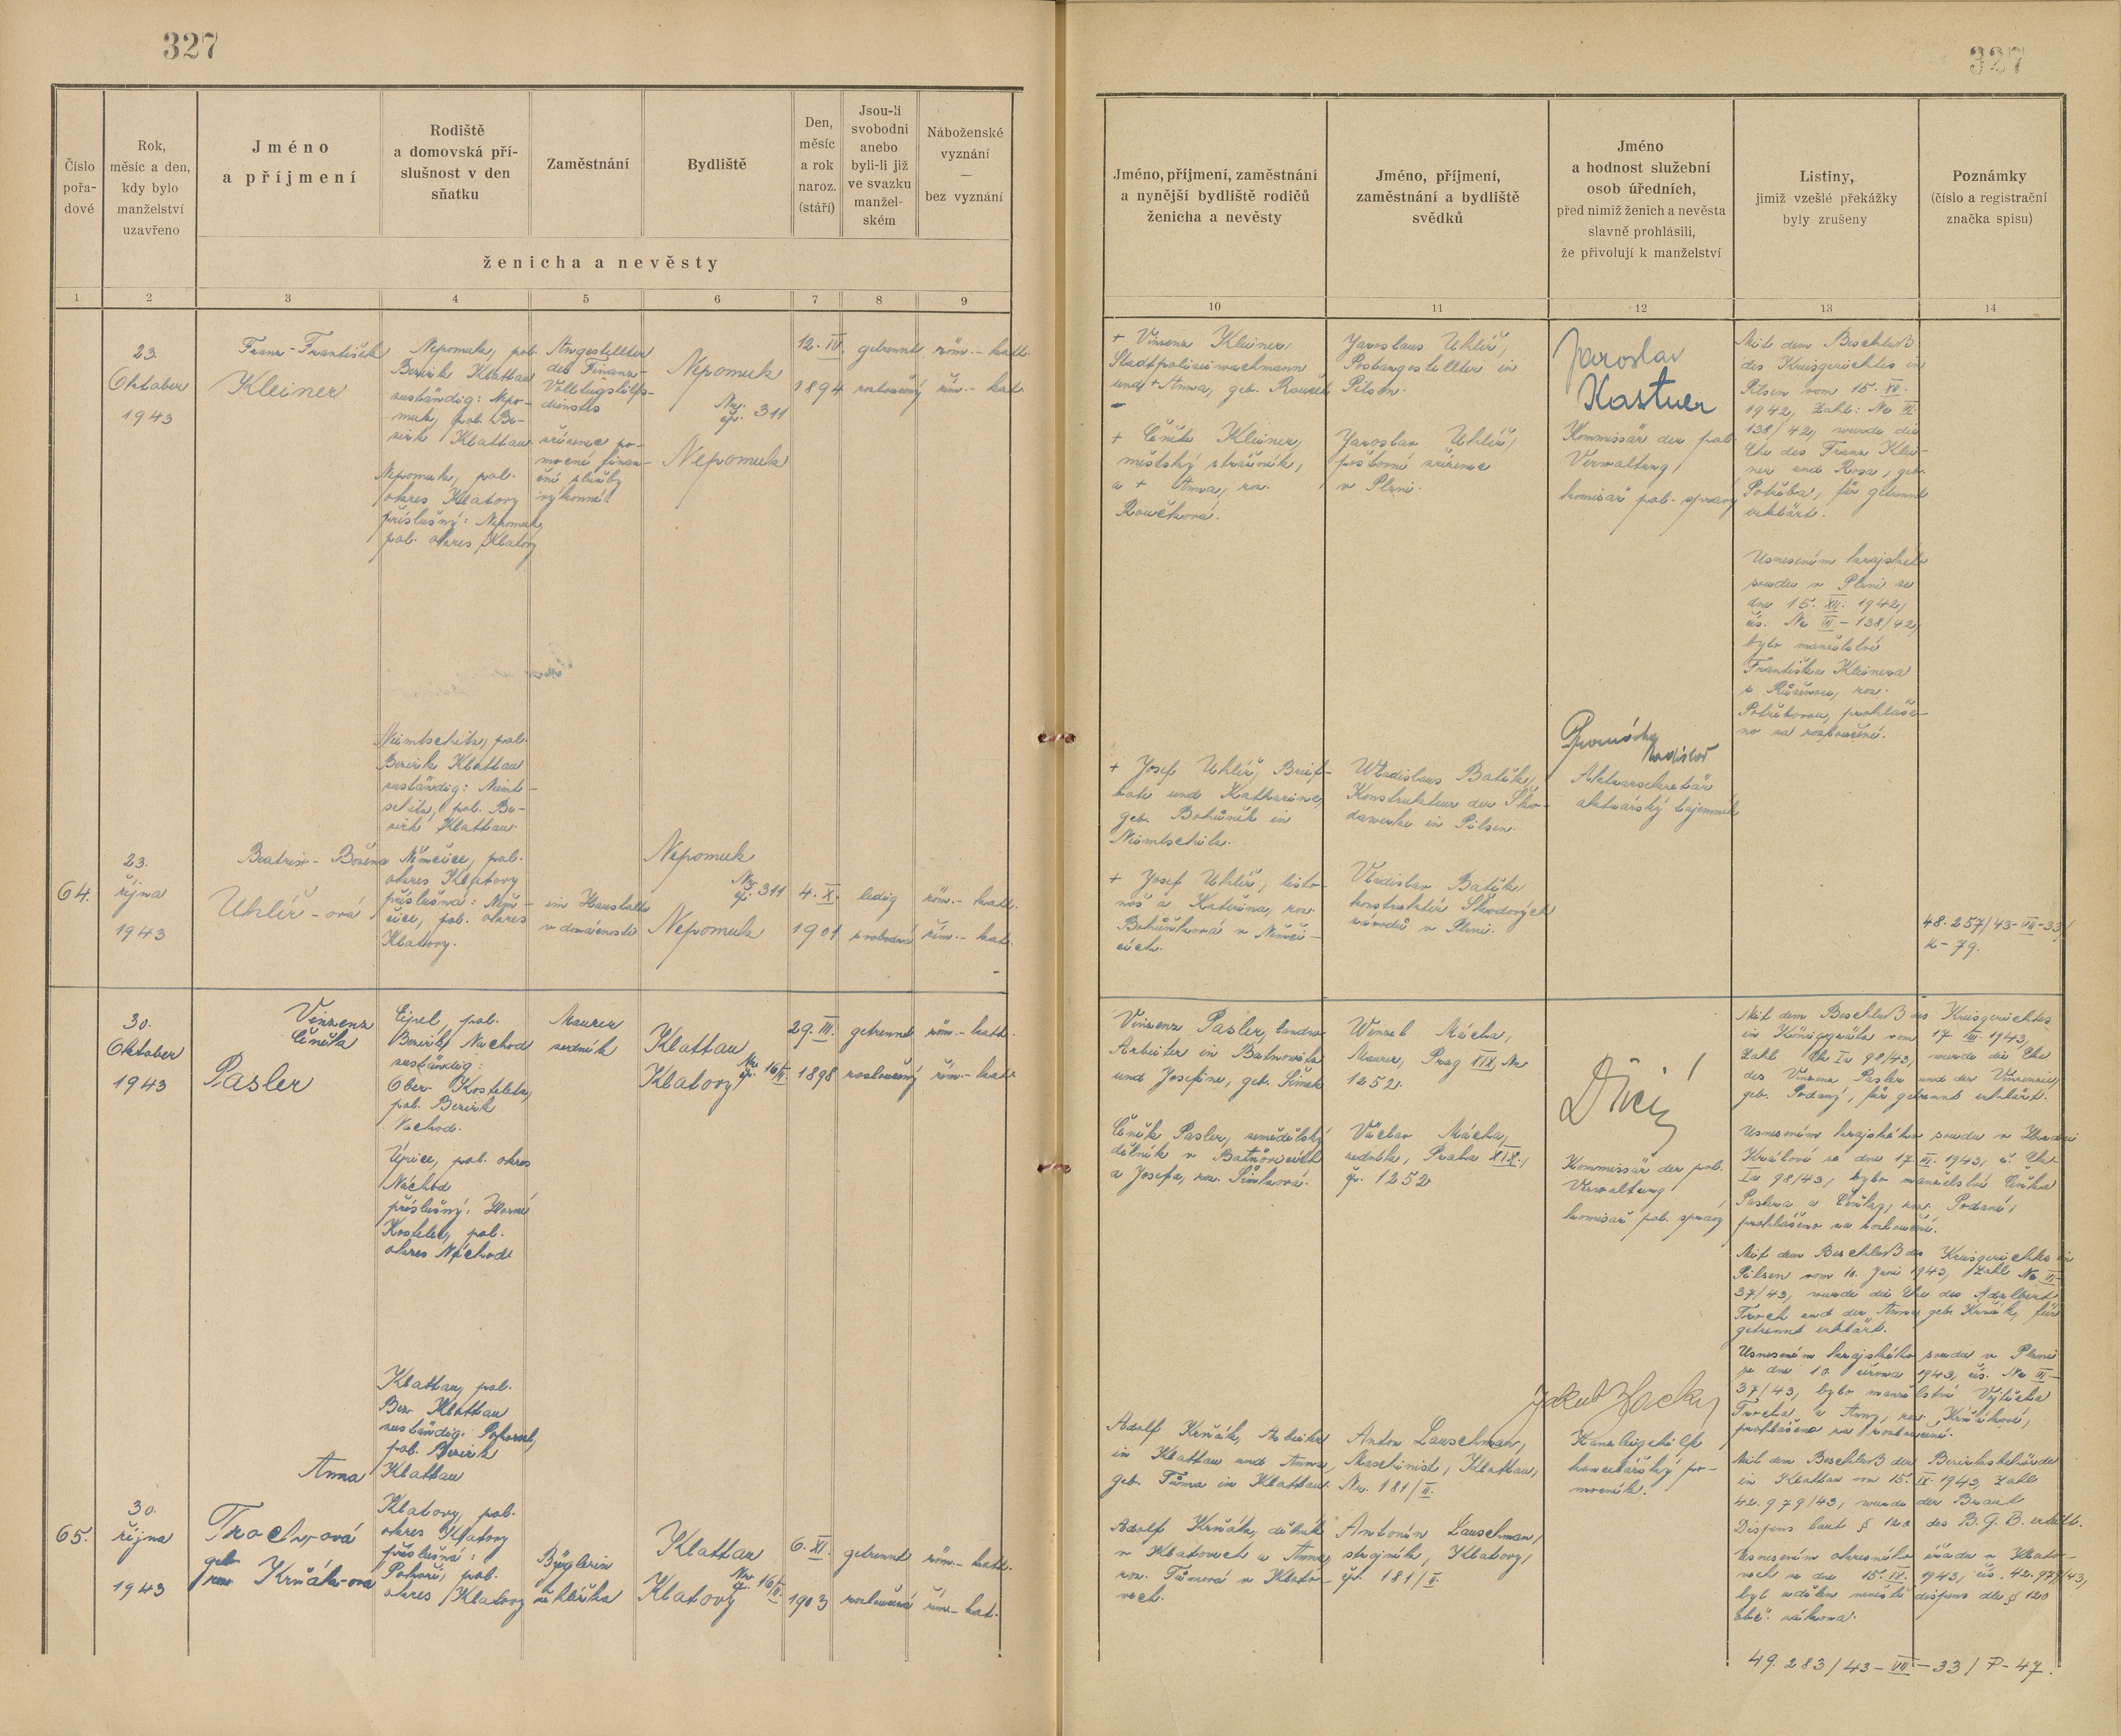 327
327
Číslo
pořa-
dové
Rok,
měsíc a den,
kdy bylo
manželství
uzavřeno
Jméno
a příjmení
Rodiště
a domovská pří-
slušnost v den
sňatku
Zaměstnání
Bydliště
Den,
měsíc
a rok
naroz.
(stáří)
Jsou-li
svobodni
anebo
byli-li již
ve svazku
manžel-
ském
Náboženské
vyznání
—
bez vyznání
ženicha a nevěsty
1 2 3 4 5 6 7 8 9
Jméno, příjmení, zaměstnání
a nynější bydliště rodičů
ženicha a nevěsty
Jméno, příjmení,
zaměstnání a bydliště
svědků
Jméno
a hodnost služební
osob úředních,
před nimiž ženich a nevěsta
slavně prohlásili,
že přivolují k manželství
Listiny,
jimiž vzešlé překážky
byly zrušeny
Poznámky
(číslo a registrační
značka spisu)
10 11 12 13 14
23.
Oktober
1943
Franz-František
Kleiner
Nepomuk, pol.
Bezirk Klattau
zuständig: Nepo-
muk, pol. Be-
zirk Klattau.
Nepomuk, pol.
okres Klatovy
příslušný: Nepomuk,
pol. okres Klatovy
Angestellter
des Finanz-
dienstes
zřízenec po-
mocné finan-
ční služby
výkonné
Nepomuk
Nr.
čp. 311
Nepomuk
12. IV.
1894
getrennt
rozloučený
röm.-kath.
řím.-kat.
+ Vinzenz Kleiner
Stadtpolizeiwachmann
und + Anna, geb. Rouček
+ Čeněk Kleiner,
městský strážník,
a + Anna, roz.
Roučková.
Jaroslaus Uhlíř,
Postangestellter in
Pilsen.
Jaroslav Uhlíř,
poštovní zřízenec
v Plzni.
Jaroslav
Kastner
Kommissär der pol.
Verwaltung
komisař pol. správy
Mit dem Beschluß
des Kreisgerichtes in
Pilsen vom 15. XII.
1942, Zahl: Nc VI
138/42, wurde die
Ehe des Franz Klei-
ner und Rosa, geb.
Potřeba, für getrennt
erklärt.
Usnesením krajského
soudu v Plzni ze
dne 15. XII. 1942,
čís. Nc VI - 138/42,
bylo manželství
Františka Kleinera
s Růženou, roz.
Potřebovou, prohláše-
no za rozloučené.
64.
23.
října
1943
Beatrix - Božena
Uhlíř-ová
Niemtschitz, pol.
Bezirk Klattau
zuständig: Niemt-
schitz, pol. Be-
zirk Klattau.
Němčice, pol.
okres Klatovy
příslušná: Něm-
čice, pol. okres
Klatovy.
im Haushalte
v domácnosti
Nepomuk
Nr.
čp. 311
Nepomuk
4. X.
1901
ledig
svobodná
röm.-kath.
řím.-kat.
+ Josef Uhlíř, Brief-
bote und Katharina,
geb. Bohůněk in
Niemtschitz.
+ Josef Uhlíř, listo-
noš a Kateřina, roz.
Bohůňková v Němči-
cích.
Wladislaus Batěk,
Konstrukteur der Sko-
dawerke in Pilsen.
Vladislav Batěk
konstruktér Škodových
závodů v Plzni.
Aktuarsekretär
aktuárský tajemník
48.257/43-VII-33/
K-79.
30.
Oktober
1943
Vinzenz
Čeněk
Pasler
Eipel, pol.
Bezirk Nachod
zuständig:
Ober Kosteletz,
pol. Bezirk
Nachod.
Úpice, pol. okres
Náchod
příslušný: Horní
Kostelec, pol.
okres Náchod
Maurer
zedník
Klattau
Nr.
čp. 16/II.
Klatovy
29. III.
1898
getrennt
rozloučený
röm.-kath.
řím.-kat.
Vinzenz Pasler, landw.
Arbeiter in Batnowitz
und Josefine, geb. Šimek
Čeněk Pasler, zemědělský
dělník v Batňovicích
a Josefa, roz. Šimková.
Wenzel Mácha,
Maurer, Prag XIX, Nr.
1252.
Václav Mácha,
zedník, Praha XIX.,
čp. 1252
Kommissär der pol.
Verwaltung
komisař pol. správy
Mit dem Beschluß des Kreisgerichtes
in Königgrätz vom 17. III. 1943,
Zahl Ck Ia 98/43, wurde die Ehe
des Vinzenz Pasler und der Vinzenzie,
geb. Podaný, für getrennt erklärt.
Usnesením krajského soudu v Hradci
Králové ze dne 17. III. 1943, č. Ck
Ia 98/43, bylo manželství Čeňka
Paslera a Čeňky, roz. Podané,
prohlášeno za rozloučené.
Mit dem Beschluß des Kreisgerichtes in
Pilsen vom 10. Juni 1943, Zahl Nc VI-
37/43, wurde die Ehe des Adalbert
Troch und der Anna, geb. Krňák, für
getrennt erklärt.
Usnesením krajského soudu v Plzni
ze dne 10. června 1943, čís. Nc VI-
37/43, bylo manželství Vojtěcha
Trocha a Anny, roz. Krňákové,
prohlášeno za rozloučené.
Mit dem Beschluß der Bezirksbehörde
in Klattau vom 15. IX. 1943, Zahl
42.979/43, wurde der Braut
Dispens laut § 120 des B.G.B. erteilt.
Usnesením okresního úřadu v Klato-
vech ze dne 15. IX. 1943, čís. 42.979/43,
byl udělen nevěstě dispens dle § 120
obč. zákona.
49.283/43-VII-33/P-47.
65.
30.
října
1943
Anna
Troch-ová
geb.
roz. Krňák-ová
Klattau, pol.
Bez. Klattau
zuständig: Pohorsch,
pol. Bezirk
Klattau
Klatovy, pol.
okres Klatovy
příslušná:
Pohoří, pol.
okres Klatovy
Büglerin
žehlířka
Klattau
Nr.
čp. 16/II.
Klatovy
6. XI.
1903
getrennt
rozloučená
röm.-kath.
řím.-kat.
Adolf Krňák, Arbeiter
in Klattau und Anna,
geb. Tůma in Klattau.
Adolf Krňák, dělník
v Klatovech a Anna,
roz. Tůmová v Klato-
vech.
Anton Lauschman,
Maschinist, Klattau,
Nr. 181/II.
Antonín Lauschman,
strojník, Klatovy,
čp. 181/II.
Kanzleigehilfe
kancelářský po-
mocník.